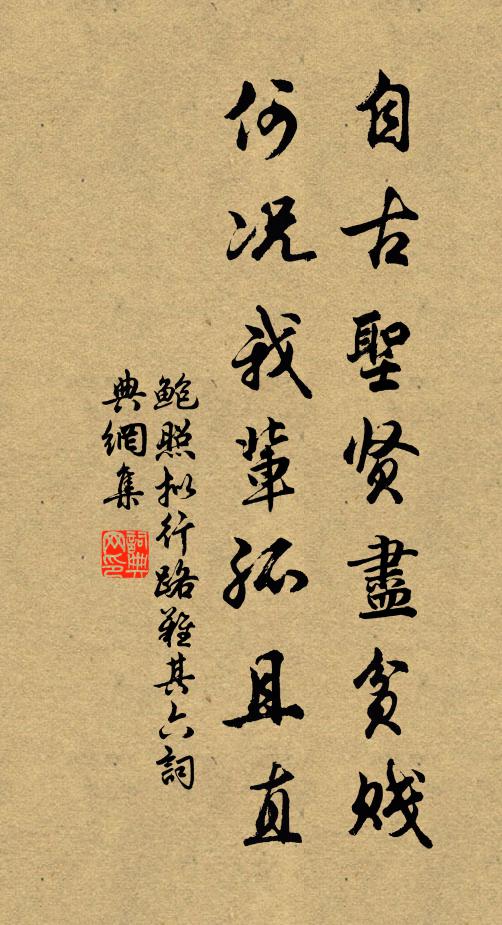 自古聖贤盡貧賤
何况我輩孤且直
鲍照拟行路難其六詞
典網集
詞典
网印